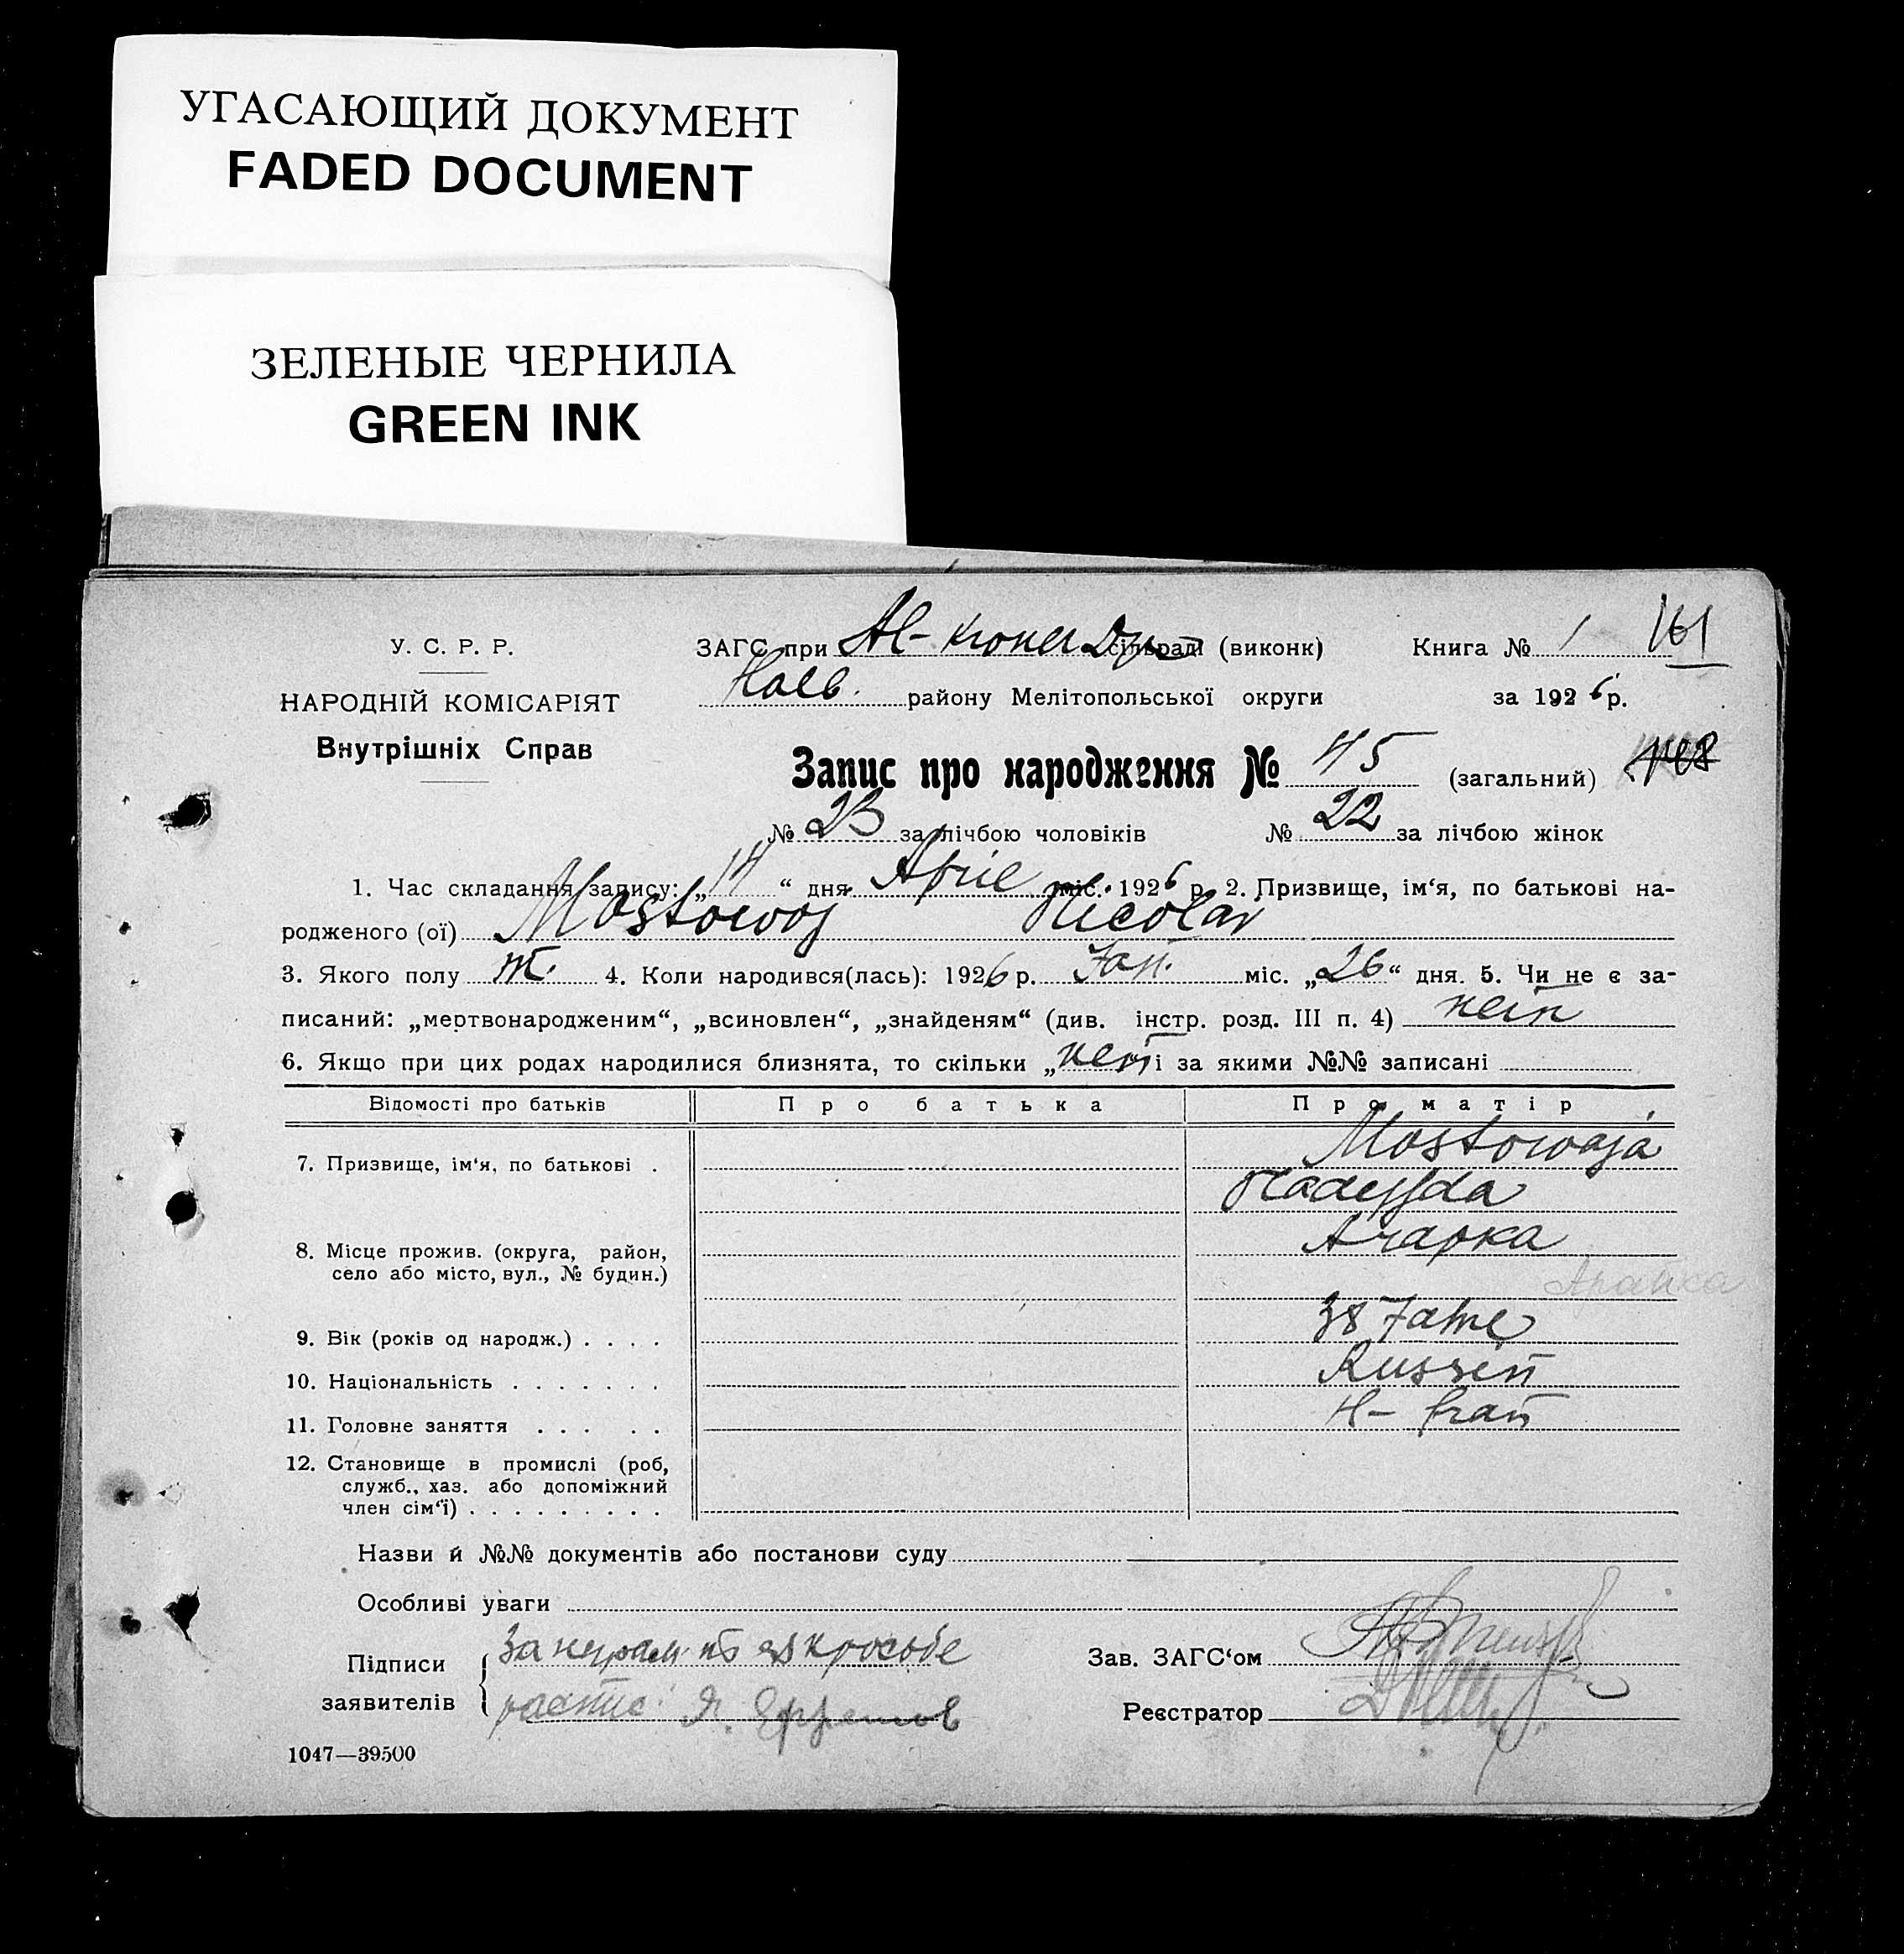 УГАСАЮЩИЙ ДОКУМЕНТ
FADED DOCUMENT
ЗЕЛЕНЫЕ ЧЕРНИЛА
GREEN INK
У. С. Р. Р.
НАРОДНІЙ КОМІСАРІЯТ
Внутрішніх Справ
ЗАГС при Al- сільраді (виконк) Книга № 1 161
Halb. району Мелітопольської округи за 1926 р.
Запис про народження № 45 (загальний)
№ 23 за лічбою чоловіків № 22 за лічбою жінок
1. Час складання запису: „14“ дня April міс. 1926 р. 2. Призвище, ім‘я, по батькові на-
родженого (ої) Mostowoj Nicolai
3. Якого полу m. 4. Коли народився(лась): 1926 р. Jan. міс. „26“ дня. 5. Чи не є за-
писаний: „мертвонародженим“, „всиновлен“, „знайденям“ (див. інстр. розд. III п. 4) nein
6. Якщо при цих родах народилися близнята, то скільки „nein і за якими №№ записані
Відомості про батьків Про батька Про матір
7. Призвище, ім‘я, по батькові . Mostowaja
8. Місце прожив. (округа, район,
село або місто, вул., № будин.)
9. Вік (років од народж.) . . . . 38 Jahre
10. Національність . . . . . . . Russin
11. Головне заняття . . . . . H- frau
12. Становище в промислі (роб,
служб., хаз. або допоміжний
член сім‘ї) . . . . . . . . .
Назви й №№ документів або постанови суду
Особливі уваги
Підписи
заявителів
Зав. ЗАГС‘ом
Я. Ефремов
Реєстратор
1047—39500